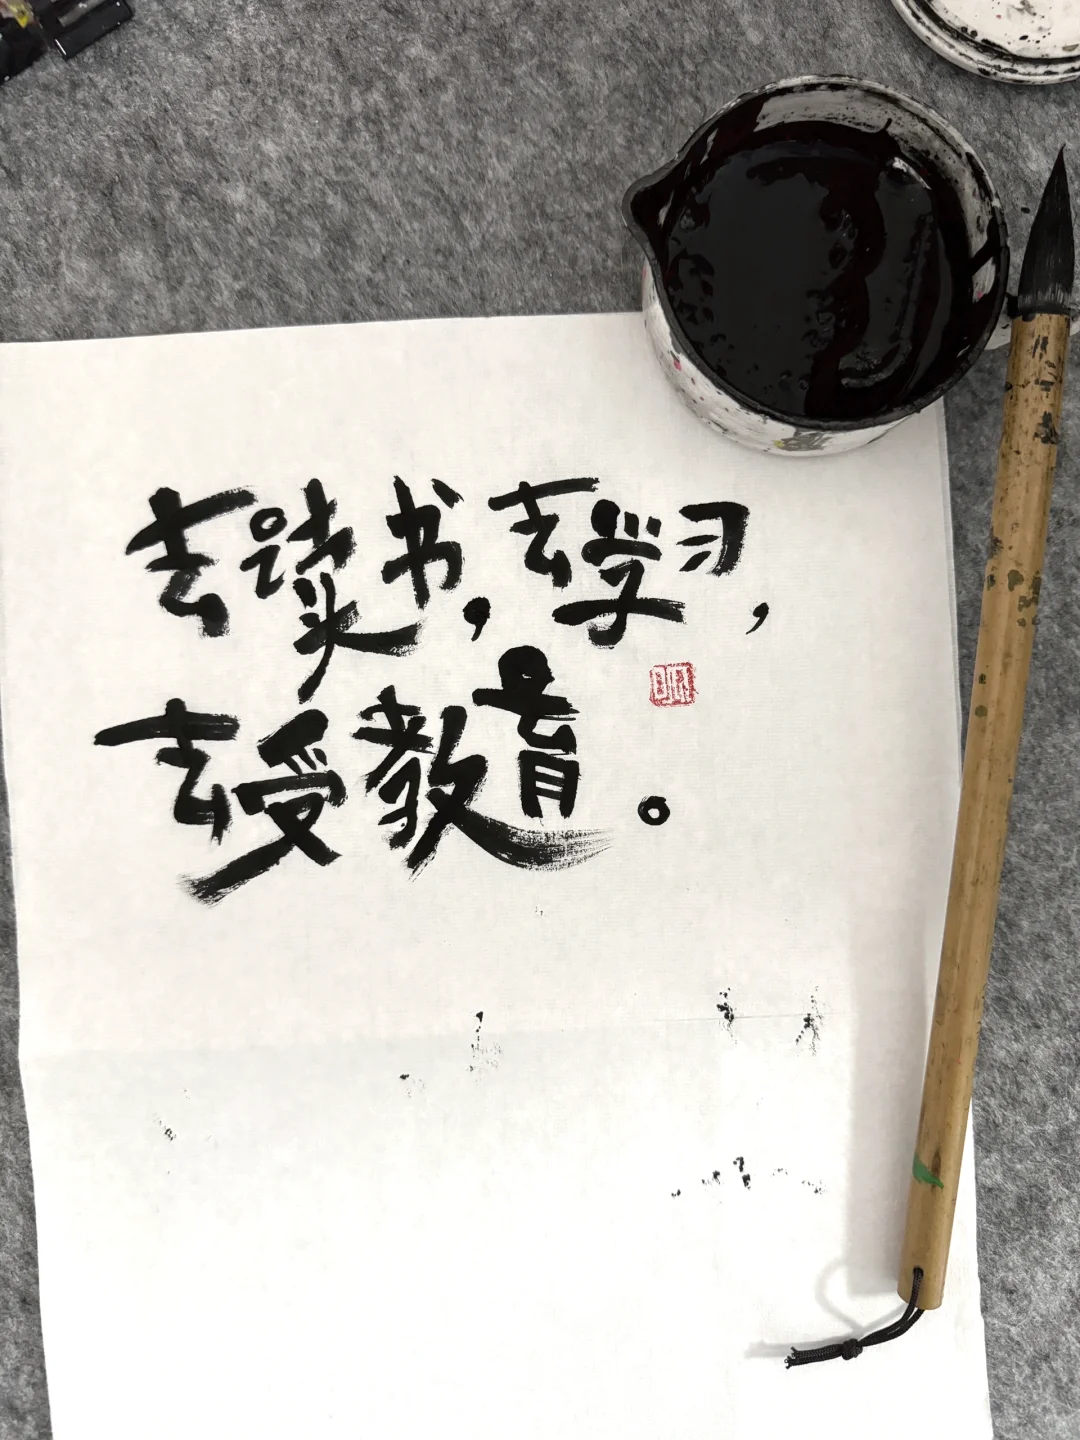 去读书，去学习，
去受教育。